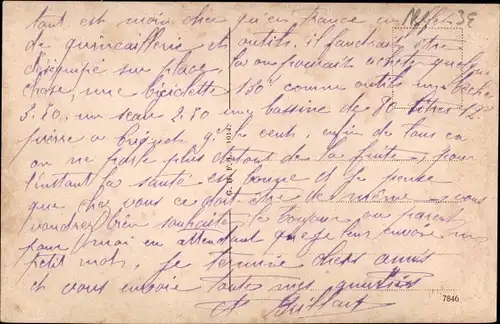 tout est moin cher qu'en France en effet
de quincaillerie et outils, il faudrait être
sur place, la on pourrait acheter quelque
chose, une bicyclette 130 comme outils une bèche
3.50, un seau 2.50 une bassine de 80 litres 12
pierre a briquet cents, enfin de tous ca
on ne parle plus de la suite, pour
l'instant la santé est bonne et je pense
que chez vous ca doit être de même, vous
voudrez bien souhaiter le bonjour au parent
pour moi en attendant que je leur envoie un
petit mot. Je termine chers amis
et vous envoie toutes mes amitiés
G. D. F. No. 1014
7846